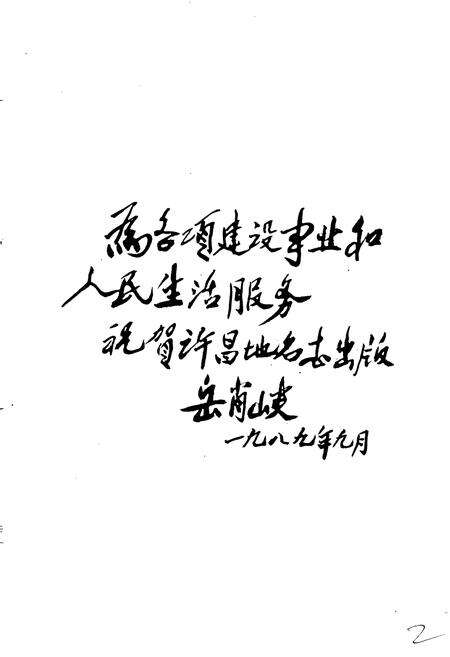 為各项建设事业和
人民生活服务
祝贺许昌地名志出版
岳肖峡
一九八九年九月
2